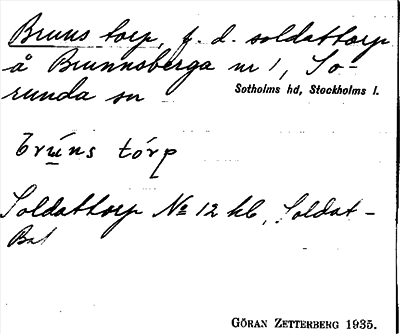 Bruns torp, f. d. soldattorp
å Brunnsberga nr 1, So-
runda sn
Sotholms hd, Stockholms l.
brúns tórp
Soldattorp № 12 kb, Soldat-
Bat
GÖRAN ZETTERBERG 1935.